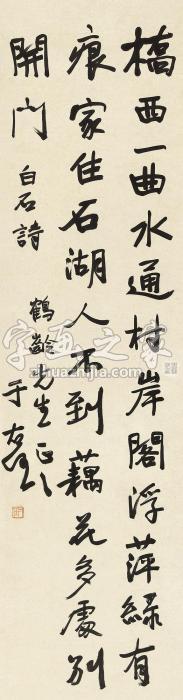 橋西一曲水通村岸閣浮萍緑有
痕家住石湖人不到藕花多處別
開門
白石詩
鶴齡先生正之
于右任
字画之家
zihuazhijia.com